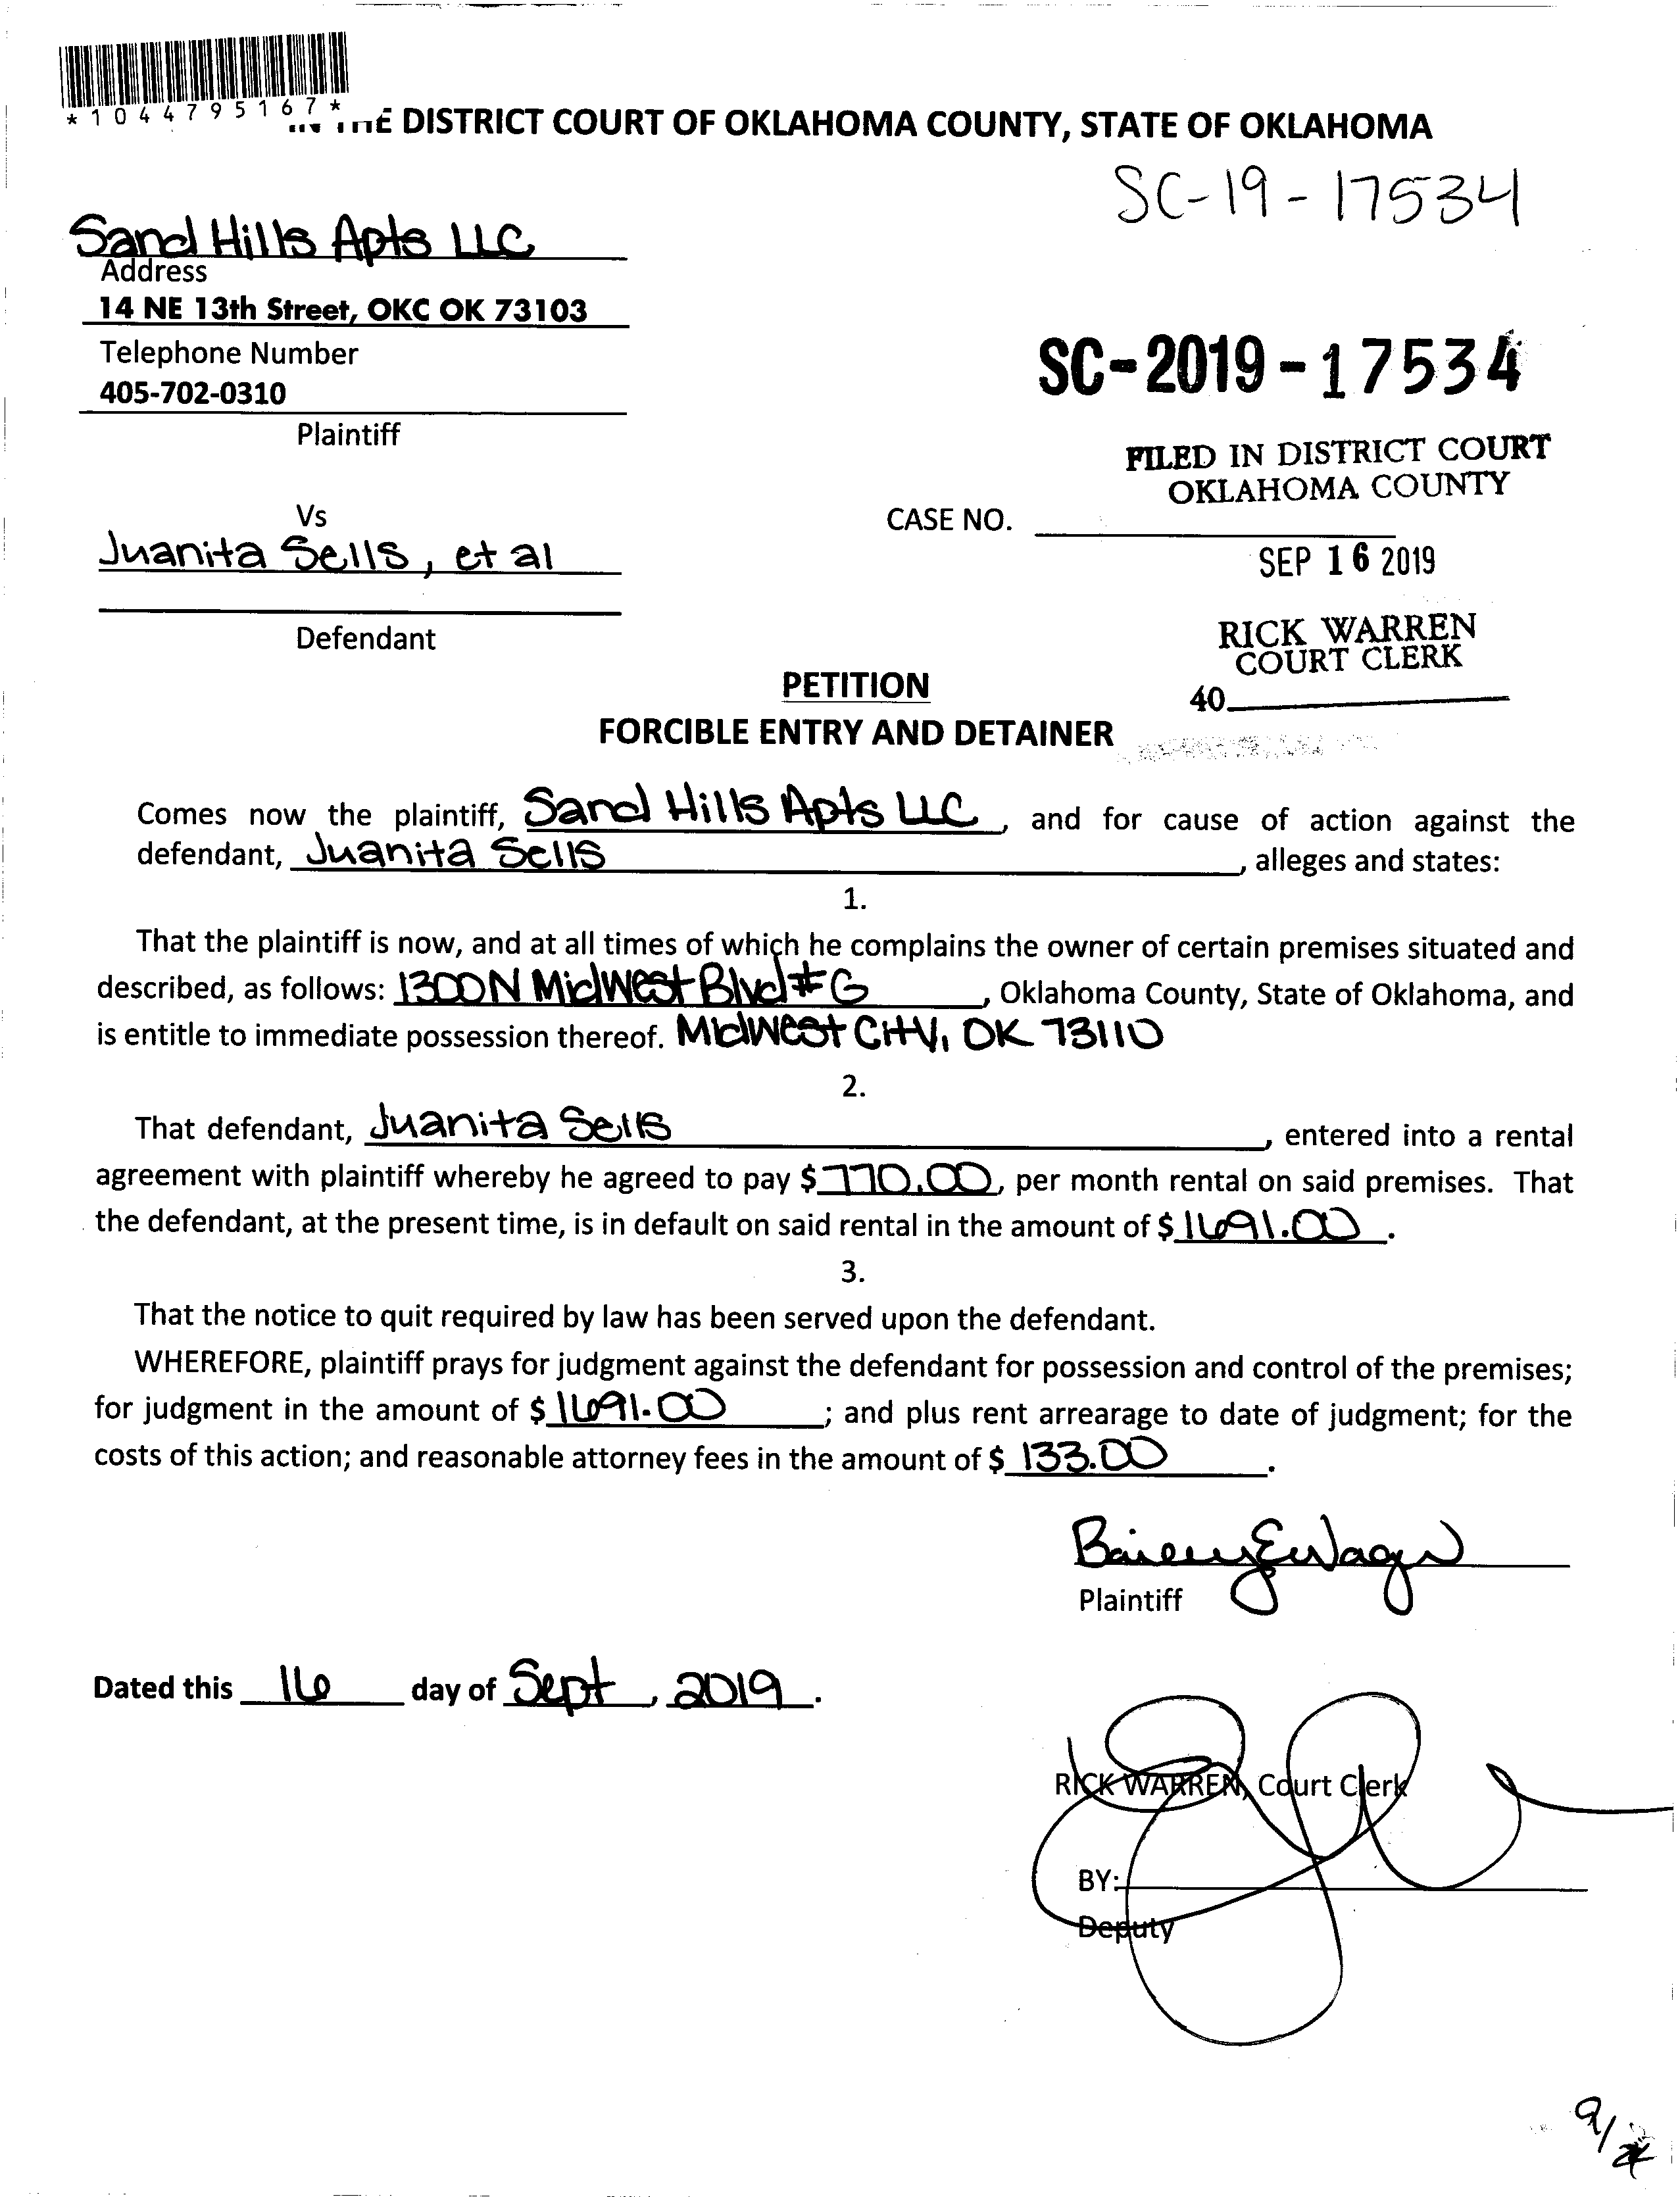 *1044795167*
THE DISTRICT COURT OF OKLAHOMA COUNTY, STATE OF OKLAHOMA
SC-19-17534
Sand Hills Apts LLC
Address
14 NE 13th Street, OKC OK 73103
Telephone Number
405-702-0310
Plaintiff
SC-2019-17534
FILED IN DISTRICT COURT
OKLAHOMA COUNTY
Vs
CASE NO.
Juanita Sells, et al
SEP 16 2019
Defendant
RICK WARREN
COURT CLERK
40
PETITION
FORCIBLE ENTRY AND DETAINER
Comes now the plaintiff, Sand Hills Apts LLC, and for cause of action against the
defendant, Juanita Sells, alleges and states:
1.
That the plaintiff is now, and at all times of which he complains the owner of certain premises situated and
described, as follows: 1300 N Midwest Blvd #G, Oklahoma County, State of Oklahoma, and
is entitle to immediate possession thereof. Midwest City, OK 73110
2.
That defendant, Juanita Sells, entered into a rental
agreement with plaintiff whereby he agreed to pay $770.00, per month rental on said premises. That
the defendant, at the present time, is in default on said rental in the amount of $1691.00.
3.
That the notice to quit required by law has been served upon the defendant.
WHEREFORE, plaintiff prays for judgment against the defendant for possession and control of the premises;
for judgment in the amount of $1691.00; and plus rent arrearage to date of judgment; for the
costs of this action; and reasonable attorney fees in the amount of $133.00.
Plaintiff
Dated this 16 day of Sept, 2019.
RICK WARREN, Court Clerk
BY:
Deputy